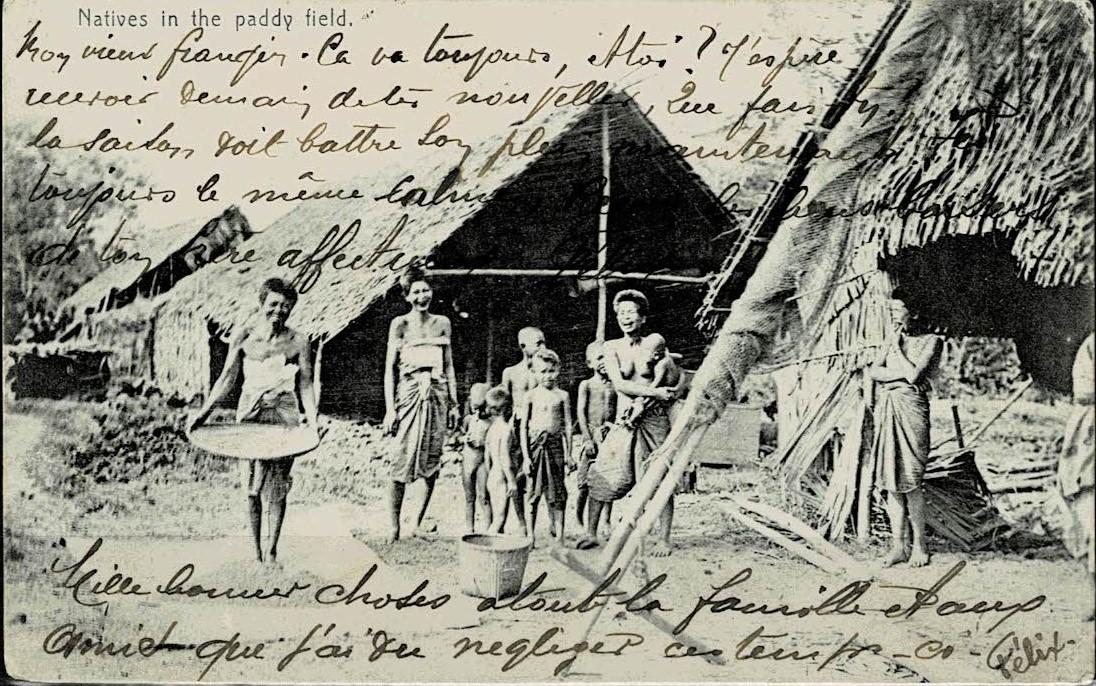 Natives in the paddy field.
Mon vieux frangin. Ca va toujours, et toi? J'espère
recevoir demain de tes nouvelles, que fais-tu,
la saison doit battre son plein maintenant
toujours le même calme
de ton frère affectionné
Mille bonnes choses à toute la famille et aux
amis que j'ai dû negliger ces temps-ci-
Félix